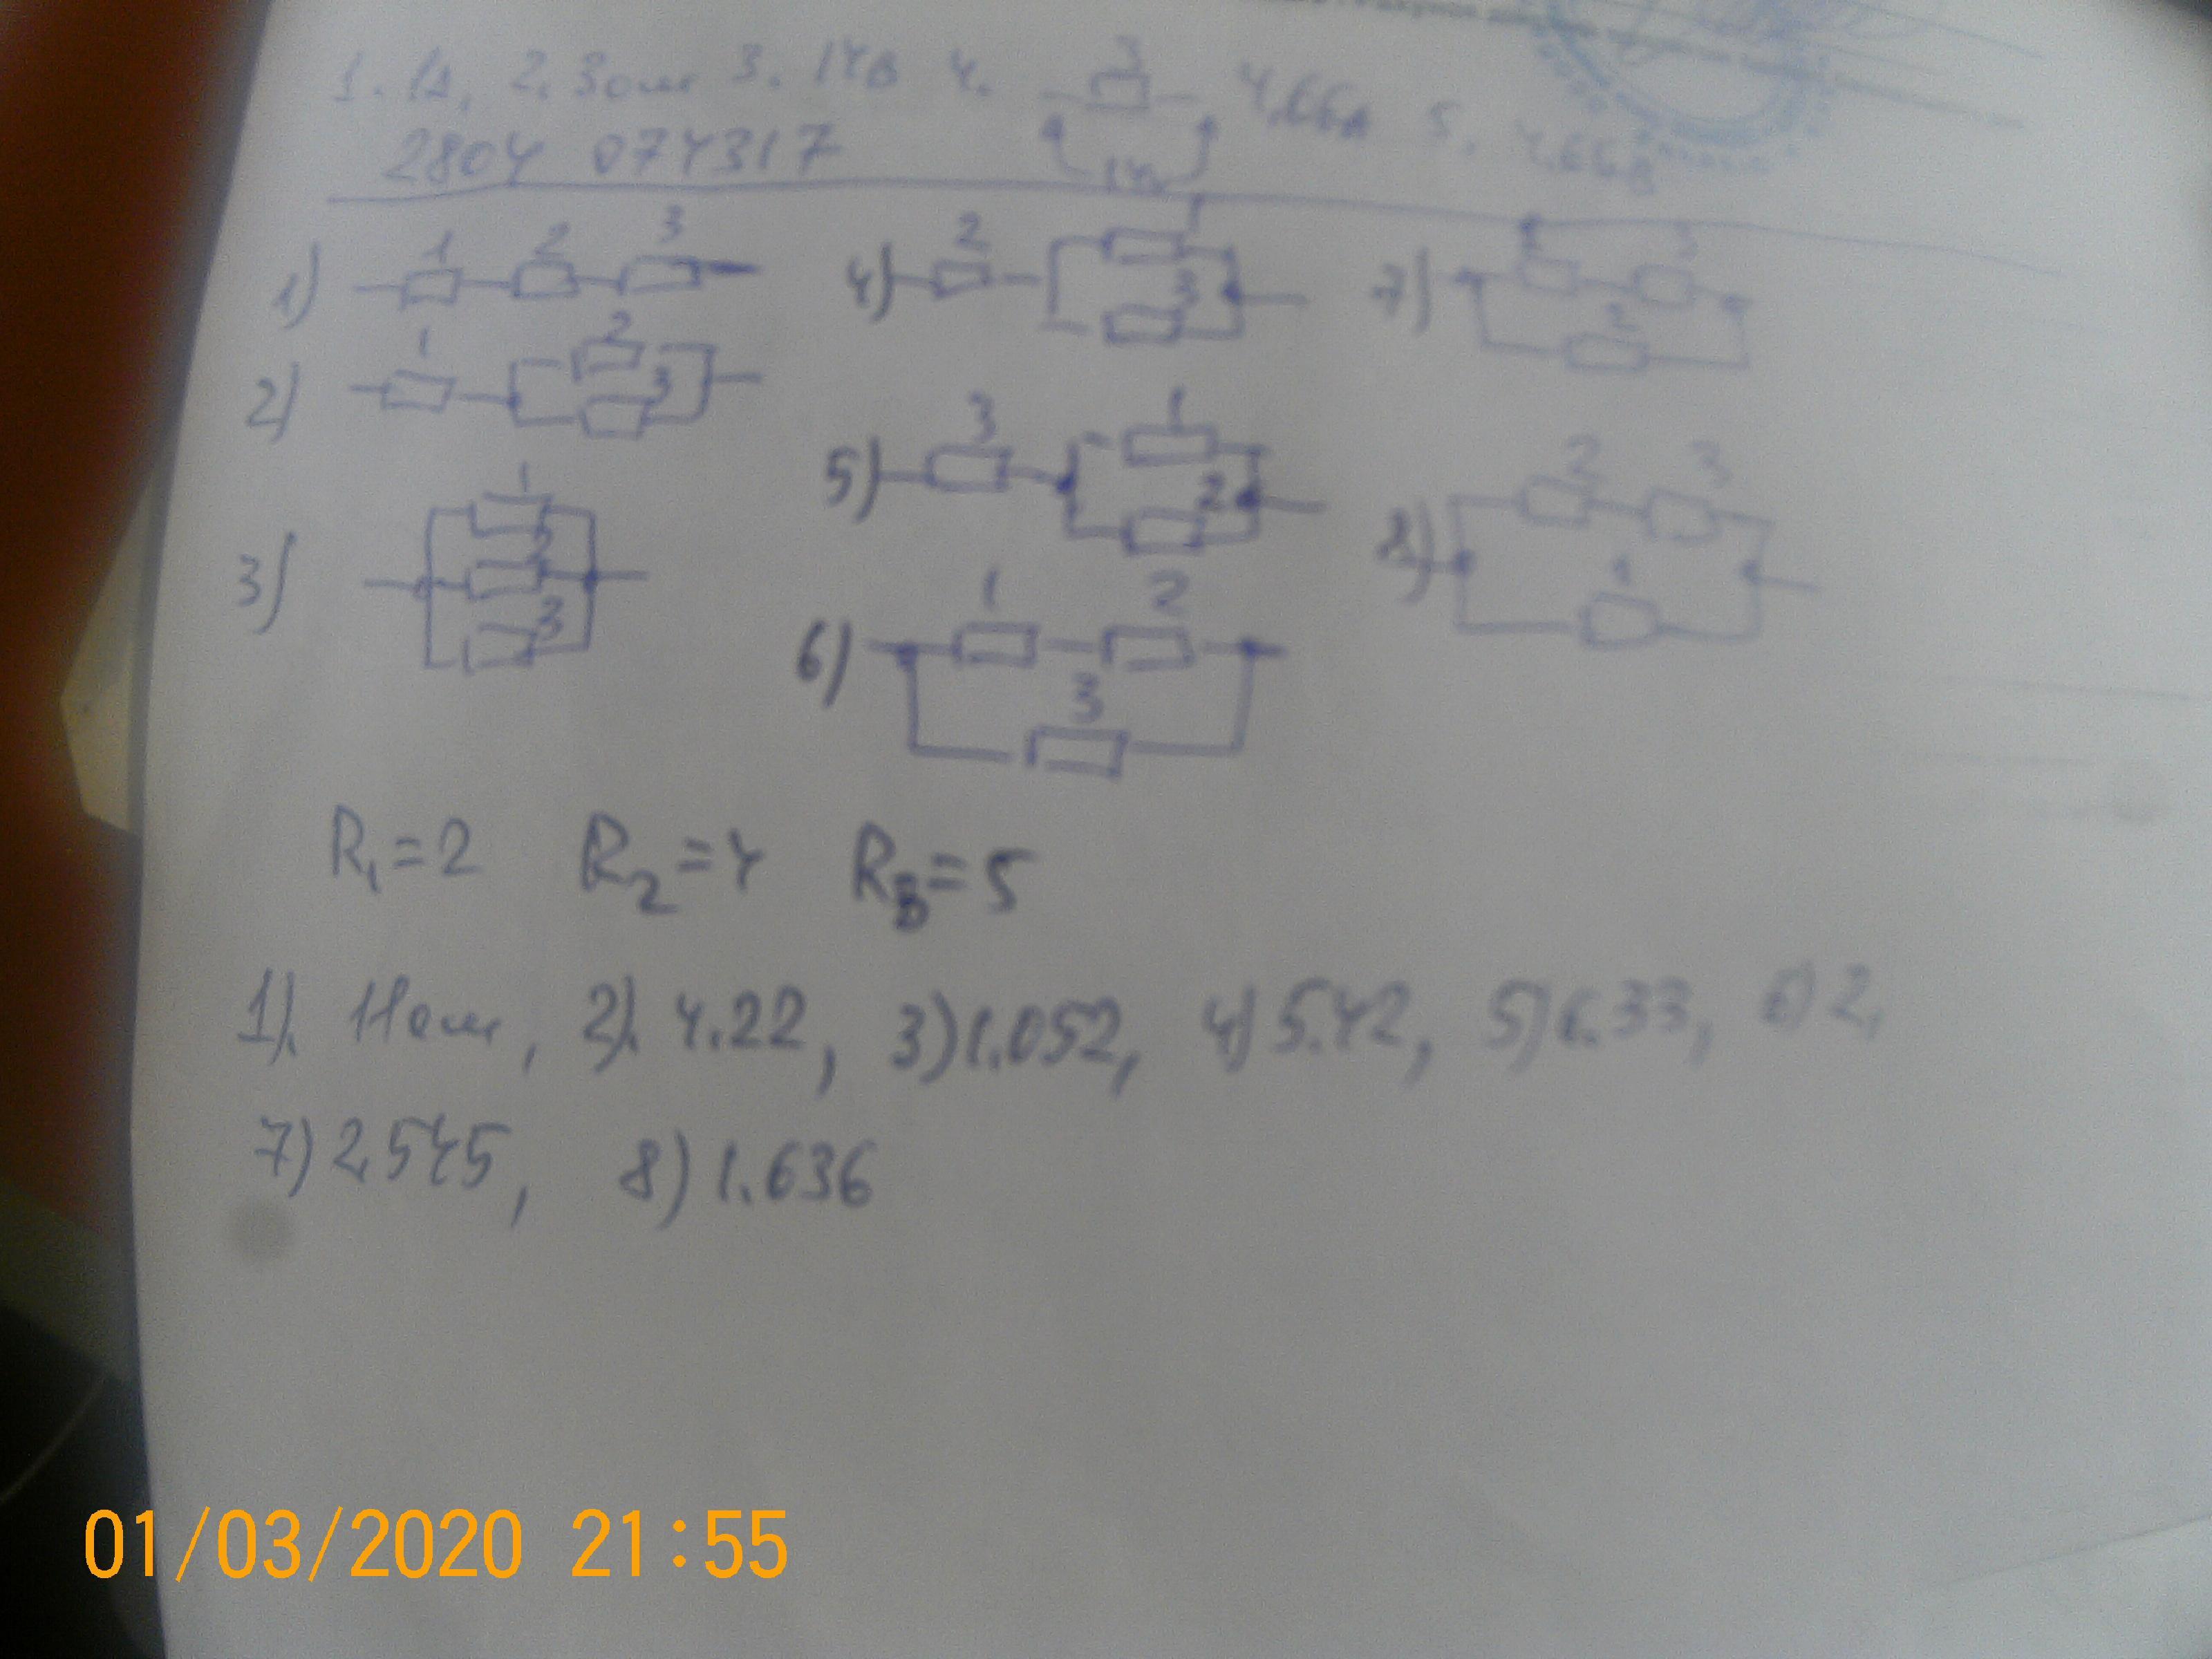 1. 1А, 2. 3 ом 3. 14В 4. 3 4,66А 5. 4.66В
2804 074317
14В
1) 1 2 3
4) 2 1 3
7) 1 3 2
2) 1 2 3
5) 3 1 2
8) 2 3 1
3) 1 2 3
6) 1 2 3
R₁=2 R₂=4 R₃=5
1). 11 ом, 2). 4.22, 3) 1.052, 4) 5.42, 5) 6.33, 6) 2,
7) 2,545, 8) 1.636
01/03/2020 21:55